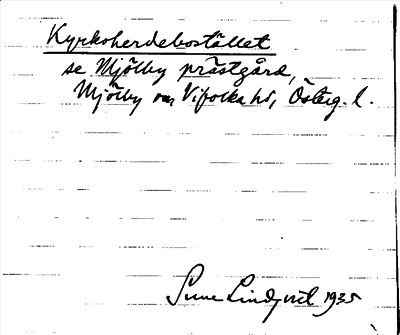 Kyrkoherdebostället
se Mjölby prästgård,
Mjölby sn Vifolka hd, Österg. l.
Sune Lindqvist 1935